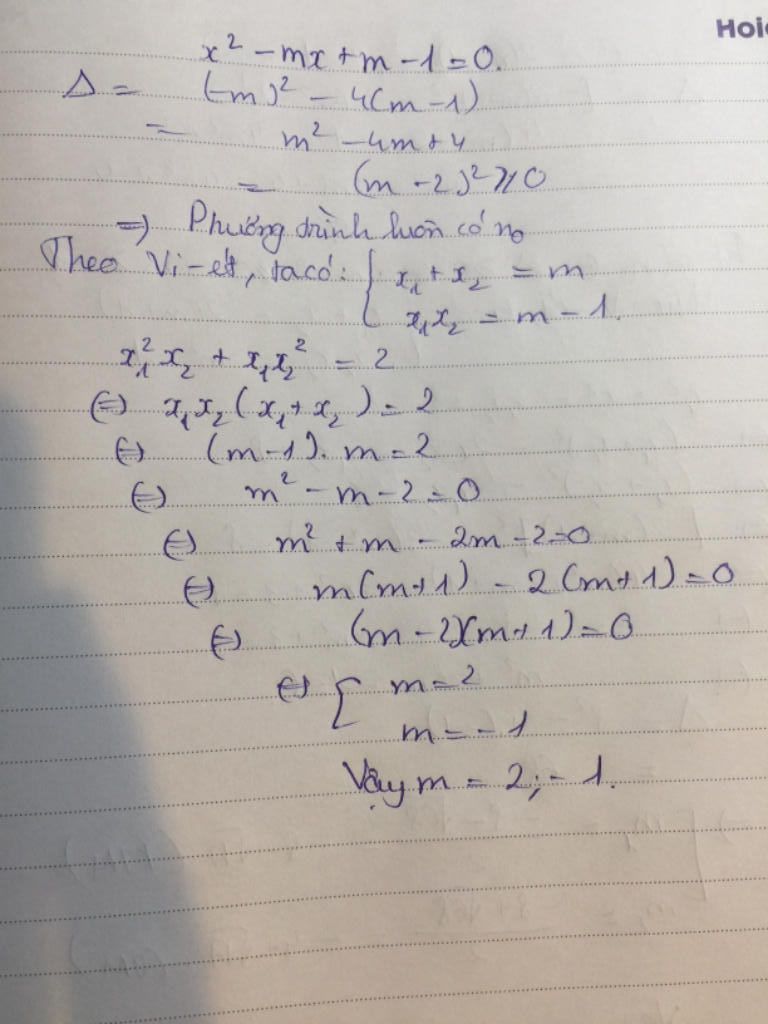 Hoic
x² - mx + m - 1 = 0.
Δ = (-m)² - 4(m - 1)
= m² - 4m + 4
= (m - 2)² ≥ 0
=> Phương trình luôn có no
Theo Vi-ét, ta có: { x₁ + x₂ = m
x₁x₂ = m - 1.
x₁²x₂ + x₁x₂² = 2
(=) x₁x₂(x₁ + x₂) = 2
(=) (m - 1). m = 2
(=) m² - m - 2 = 0
(=) m² + m - 2m - 2 = 0
(=) m(m + 1) - 2(m + 1) = 0
(=) (m - 2)(m + 1) = 0
(=) [ m = 2
m = - 1
Vậy m = 2; - 1.